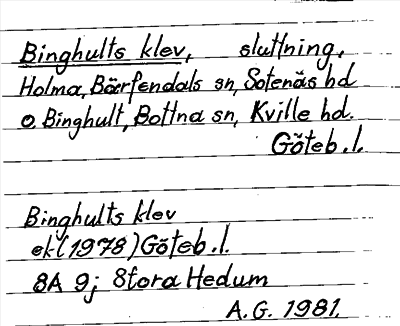 Binghults klev, sluttning,
Holma, Bärfendals sn, Sotenäs hd
o. Binghult, Bottna sn, Kville hd.
Göteb. l.
Binghults klev
ek (1978) Göteb. l.
8A 9j Stora Hedum
A.G. 1981.